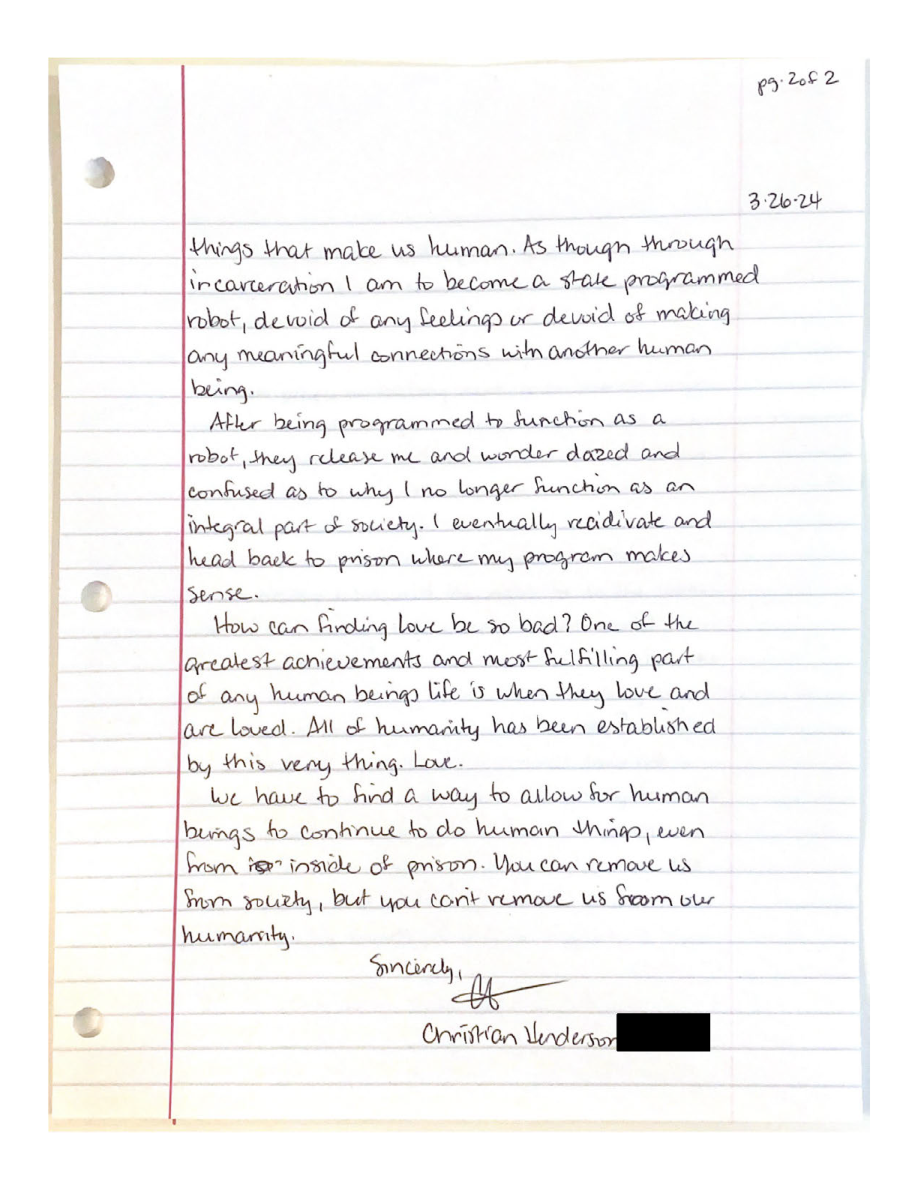 pg. 2 of 2
3·26·24
things that make us human. As though through
incarceration I am to become a state programmed
robot, devoid of any feelings or devoid of making
any meaningful connections with another human
being.
After being programmed to function as a
robot, they release me and wonder dazed and
confused as to why I no longer function as an
integral part of society. I eventually recidivate and
head back to prison where my program makes
sense.
How can finding love be so bad? One of the
greatest achievements and most fulfilling part
of any human beings life is when they love and
are loved. All of humanity has been established
by this very thing. Love.
We have to find a way to allow for human
beings to continue to do human things, even
from inside of prison. You can remove us
from society, but you can't remove us from our
humanity.
Sincerely,
Christian Henderson